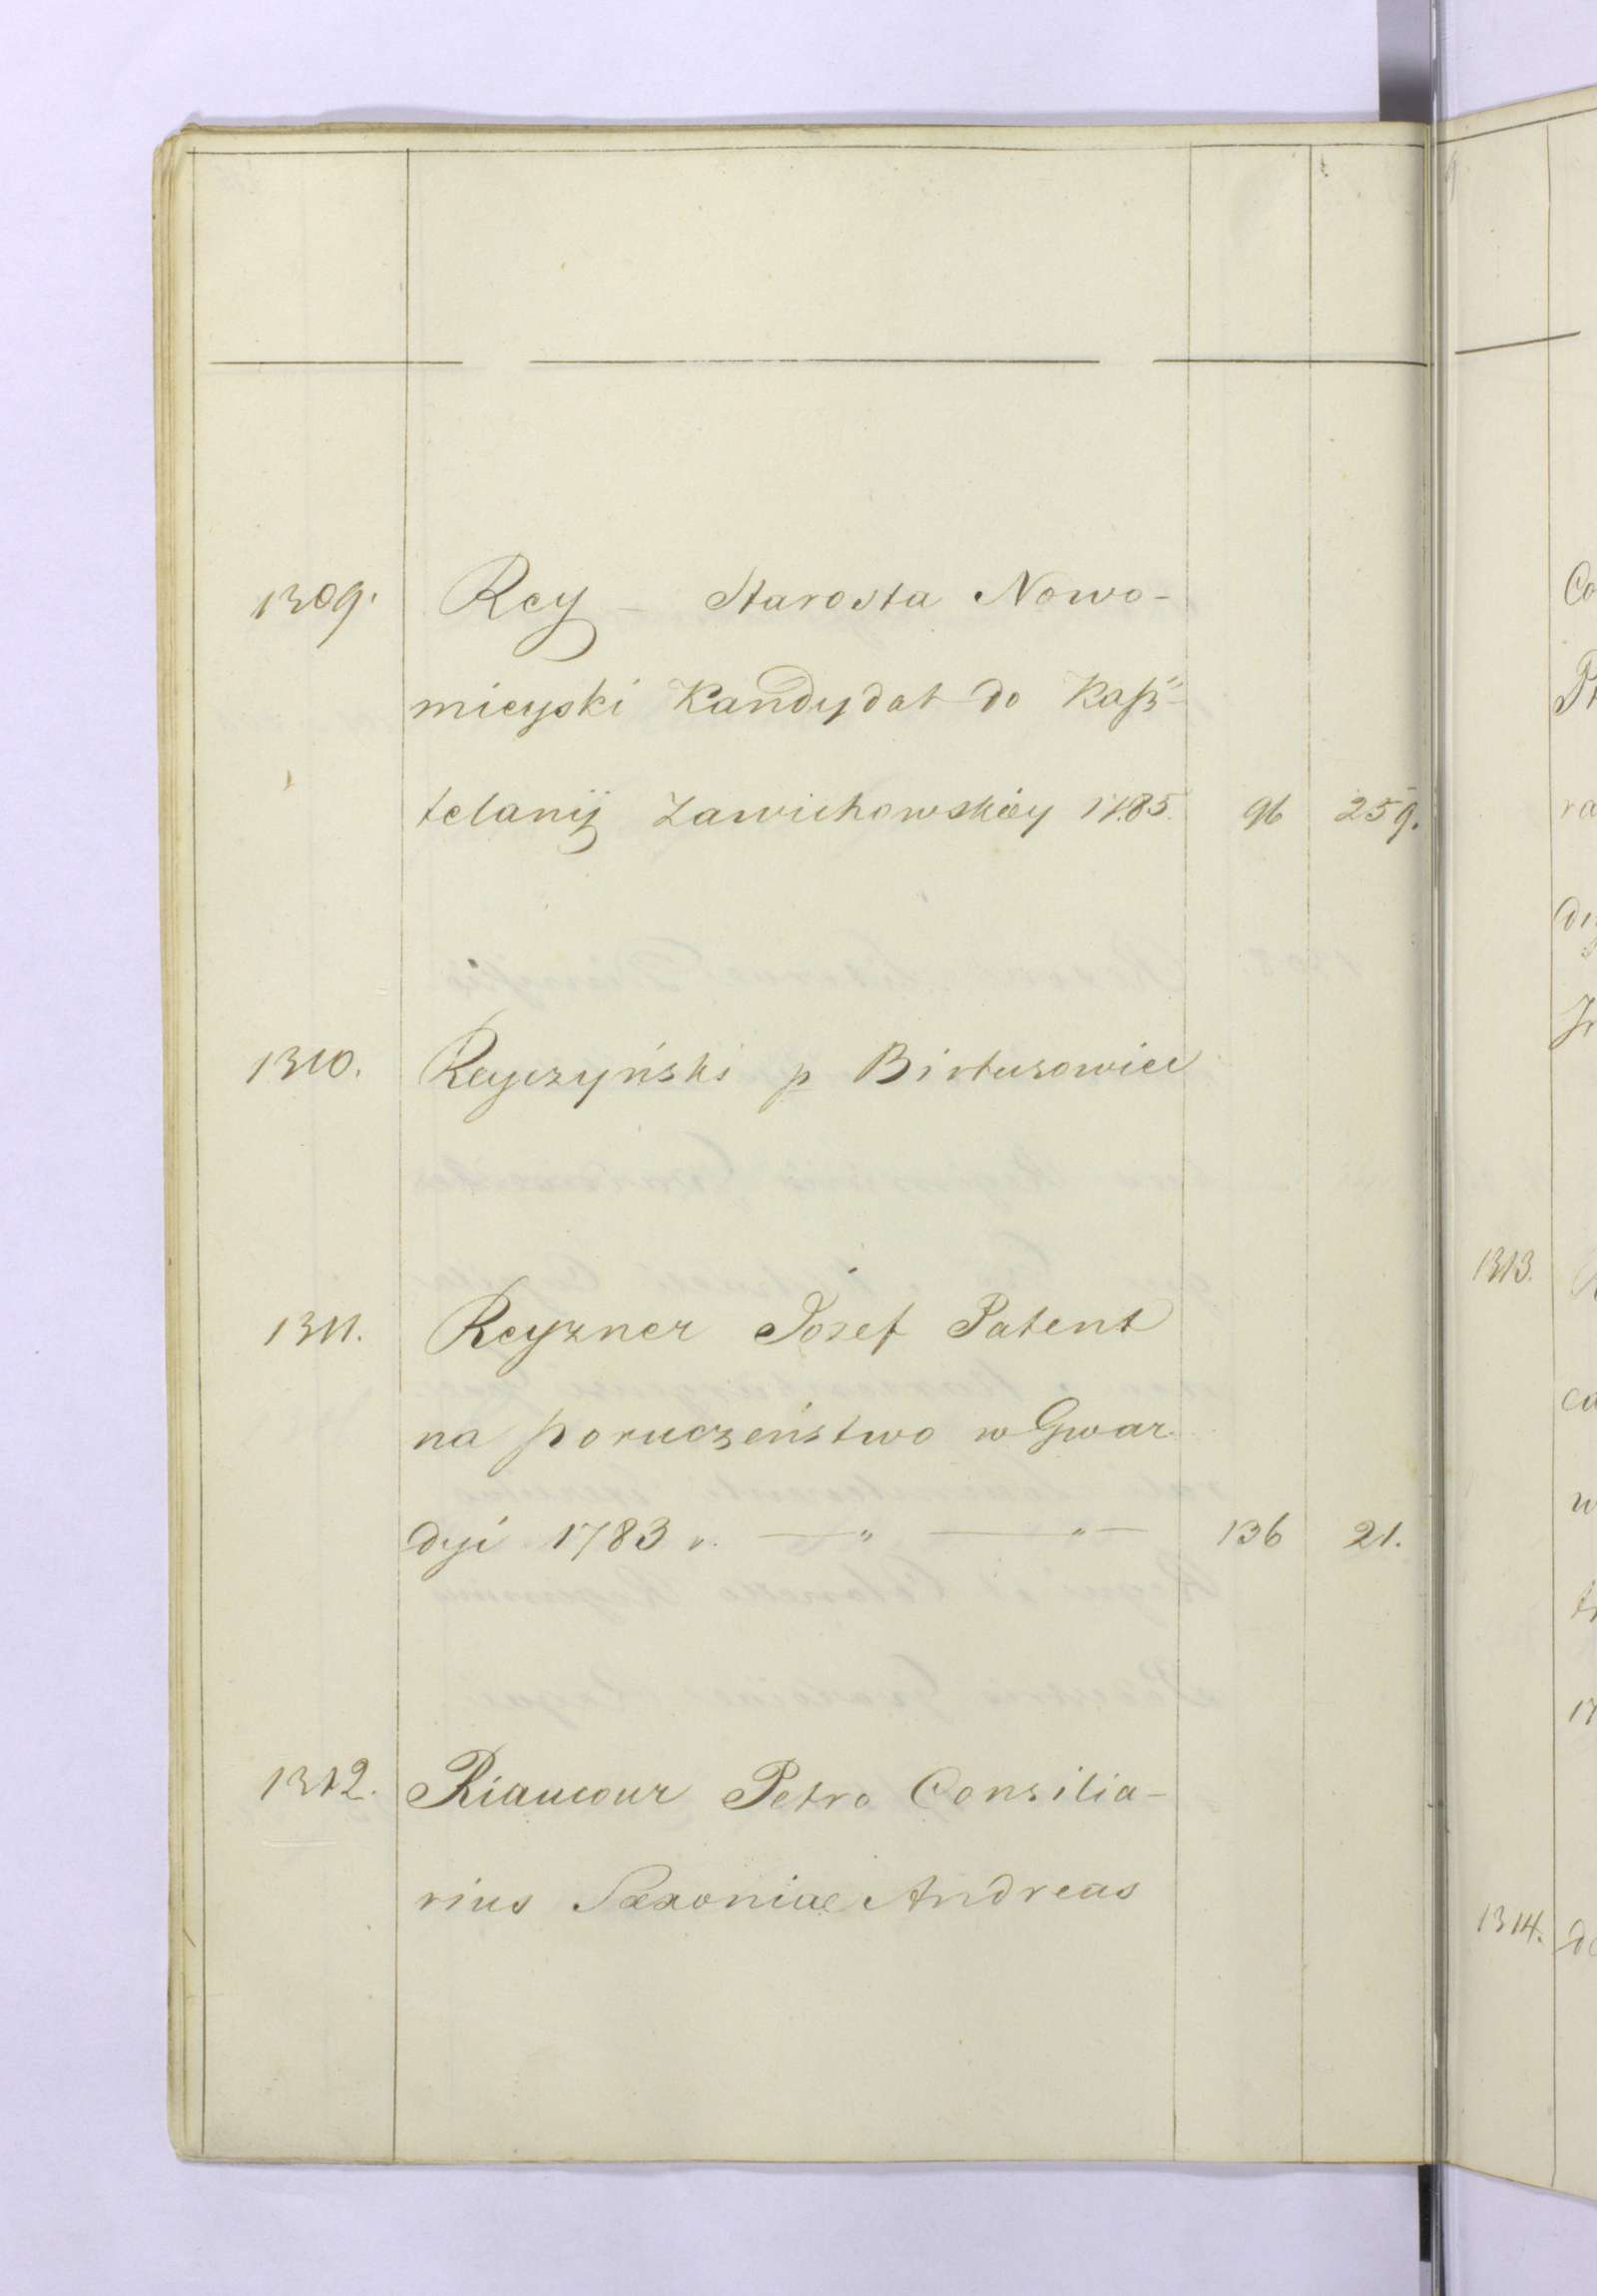 1309. Rey - Starosta Nowo-
mieyski Kandydat do Kasz-
telanij Zawichowskiey 1785. 96 259.
1310. Reyczyński p Birtusowice
1311. Reyzner Jozef Patent
na poruczeństwo w Gwar-
dyi 1783 r. — " — " — 136 21.
1312. Riaucour Petro Consilia-
rius Saxoniae Andreas
1313.
1314.